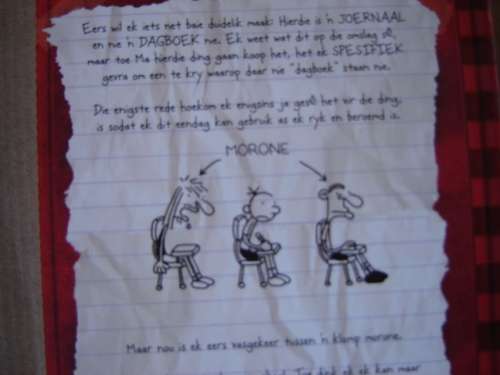 Eers wil ek iets net baie duidelik maak: Hierdie is 'n JOERNAAL
en nie 'n DAGBOEK nie. Ek weet wat dit op die omslag sê,
maar toe Ma hierdie ding gaan koop het, het ek SPESIFIEK
gevra om een te kry waarop daar nie "dagboek" staan nie.
Die enigste rede hoekom ek enigsins ja gesê het vir die ding,
is sodat ek dit eendag kan gebruik as ek ryk en beroemd is.
MORONE
Maar nou is ek eers vasgekeer tussen 'n klomp morone.
ek ek kan maar